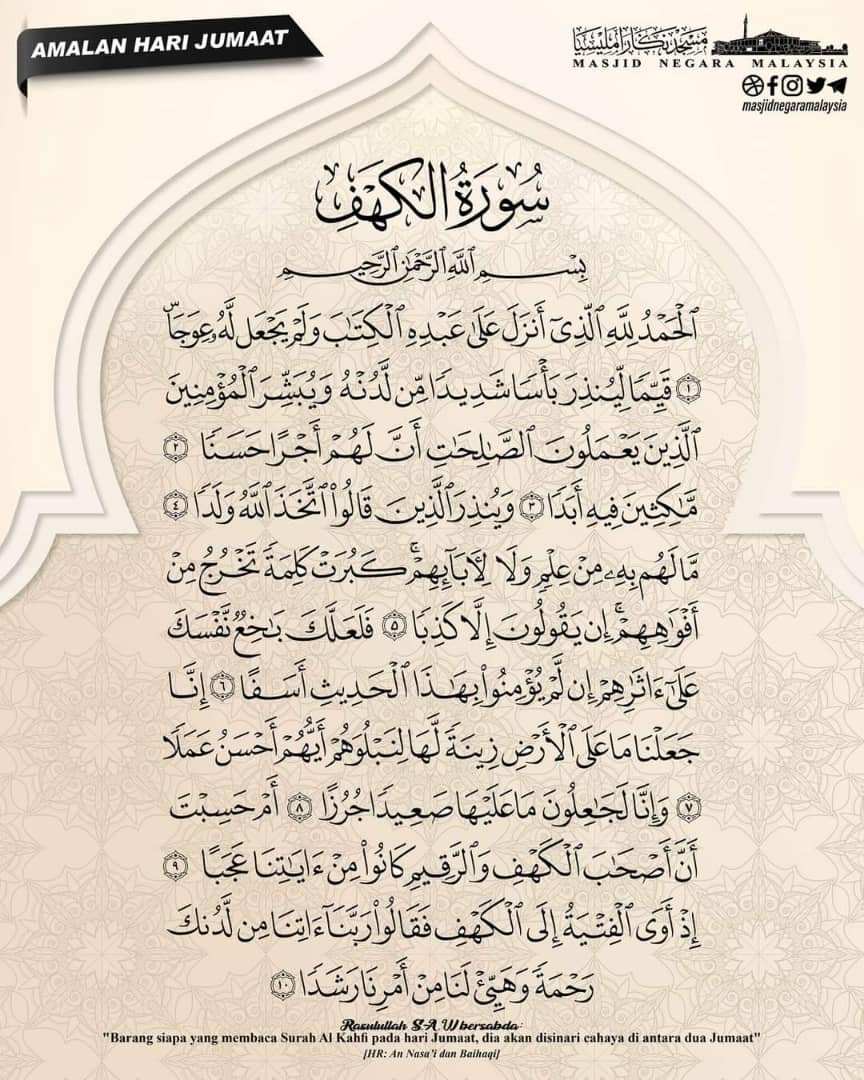 AMALAN HARI JUMAAT
مسجد نݢارا مليسيا
MASJID NEGARA MALAYSIA
masjidnegaramalaysia
سُورَةُ الْكَهْفِ
بِسْمِ ٱللَّهِ ٱلرَّحْمَٰنِ ٱلرَّحِيمِ
ٱلْحَمْدُ لِلَّهِ ٱلَّذِىٓ أَنزَلَ عَلَىٰ عَبْدِهِ ٱلْكِتَٰبَ وَلَمْ يَجْعَل لَّهُۥ عِوَجَاۜ
١ قَيِّمًا لِّيُنذِرَ بَأْسًا شَدِيدًا مِّن لَّدُنْهُ وَيُبَشِّرَ ٱلْمُؤْمِنِينَ
ٱلَّذِينَ يَعْمَلُونَ ٱلصَّٰلِحَٰتِ أَنَّ لَهُمْ أَجْرًا حَسَنًا ٢
مَّٰكِثِينَ فِيهِ أَبَدًا ٣ وَيُنذِرَ ٱلَّذِينَ قَالُوا۟ ٱتَّخَذَ ٱللَّهُ وَلَدًا ٤
مَّا لَهُم بِهِۦ مِنْ عِلْمٍ وَلَا لِءَابَآئِهِمْ ۚ كَبُرَتْ كَلِمَةً تَخْرُجُ مِنْ
أَفْوَٰهِهِمْ ۚ إِن يَقُولُونَ إِلَّا كَذِبًا ٥ فَلَعَلَّكَ بَٰخِعٌ نَّفْسَكَ
عَلَىٰٓ ءَاثَٰرِهِمْ إِن لَّمْ يُؤْمِنُوا۟ بِهَٰذَا ٱلْحَدِيثِ أَسَفًا ٦ إِنَّا
جَعَلْنَا مَا عَلَى ٱلْأَرْضِ زِينَةً لَّهَا لِنَبْلُوَهُمْ أَيُّهُمْ أَحْسَنُ عَمَلًا
٧ وَإِنَّا لَجَٰعِلُونَ مَا عَلَيْهَا صَعِيدًا جُرُزًا ٨ أَمْ حَسِبْتَ
أَنَّ أَصْحَٰبَ ٱلْكَهْفِ وَٱلرَّقِيمِ كَانُوا۟ مِنْ ءَايَٰتِنَا عَجَبًا ٩
إِذْ أَوَى ٱلْفِتْيَةُ إِلَى ٱلْكَهْفِ فَقَالُوا۟ رَبَّنَآ ءَاتِنَا مِن لَّدُنكَ
رَحْمَةً وَهَيِّئْ لَنَا مِنْ أَمْرِنَا رَشَدًا ١٠
Rasulullah S.A.W bersabda:
"Barang siapa yang membaca Surah Al Kahfi pada hari Jumaat, dia akan disinari cahaya di antara dua Jumaat"
[HR: An Nasa'i dan Baihaqi]